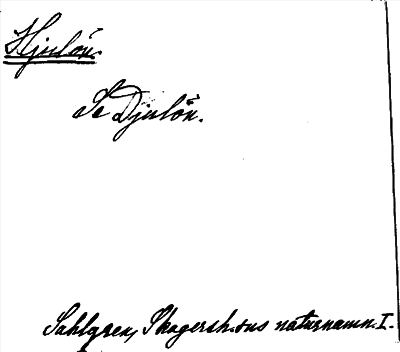 Hjulön.
Se Djulön.
Sahlgren, Skagersh:s naturnamn. I.